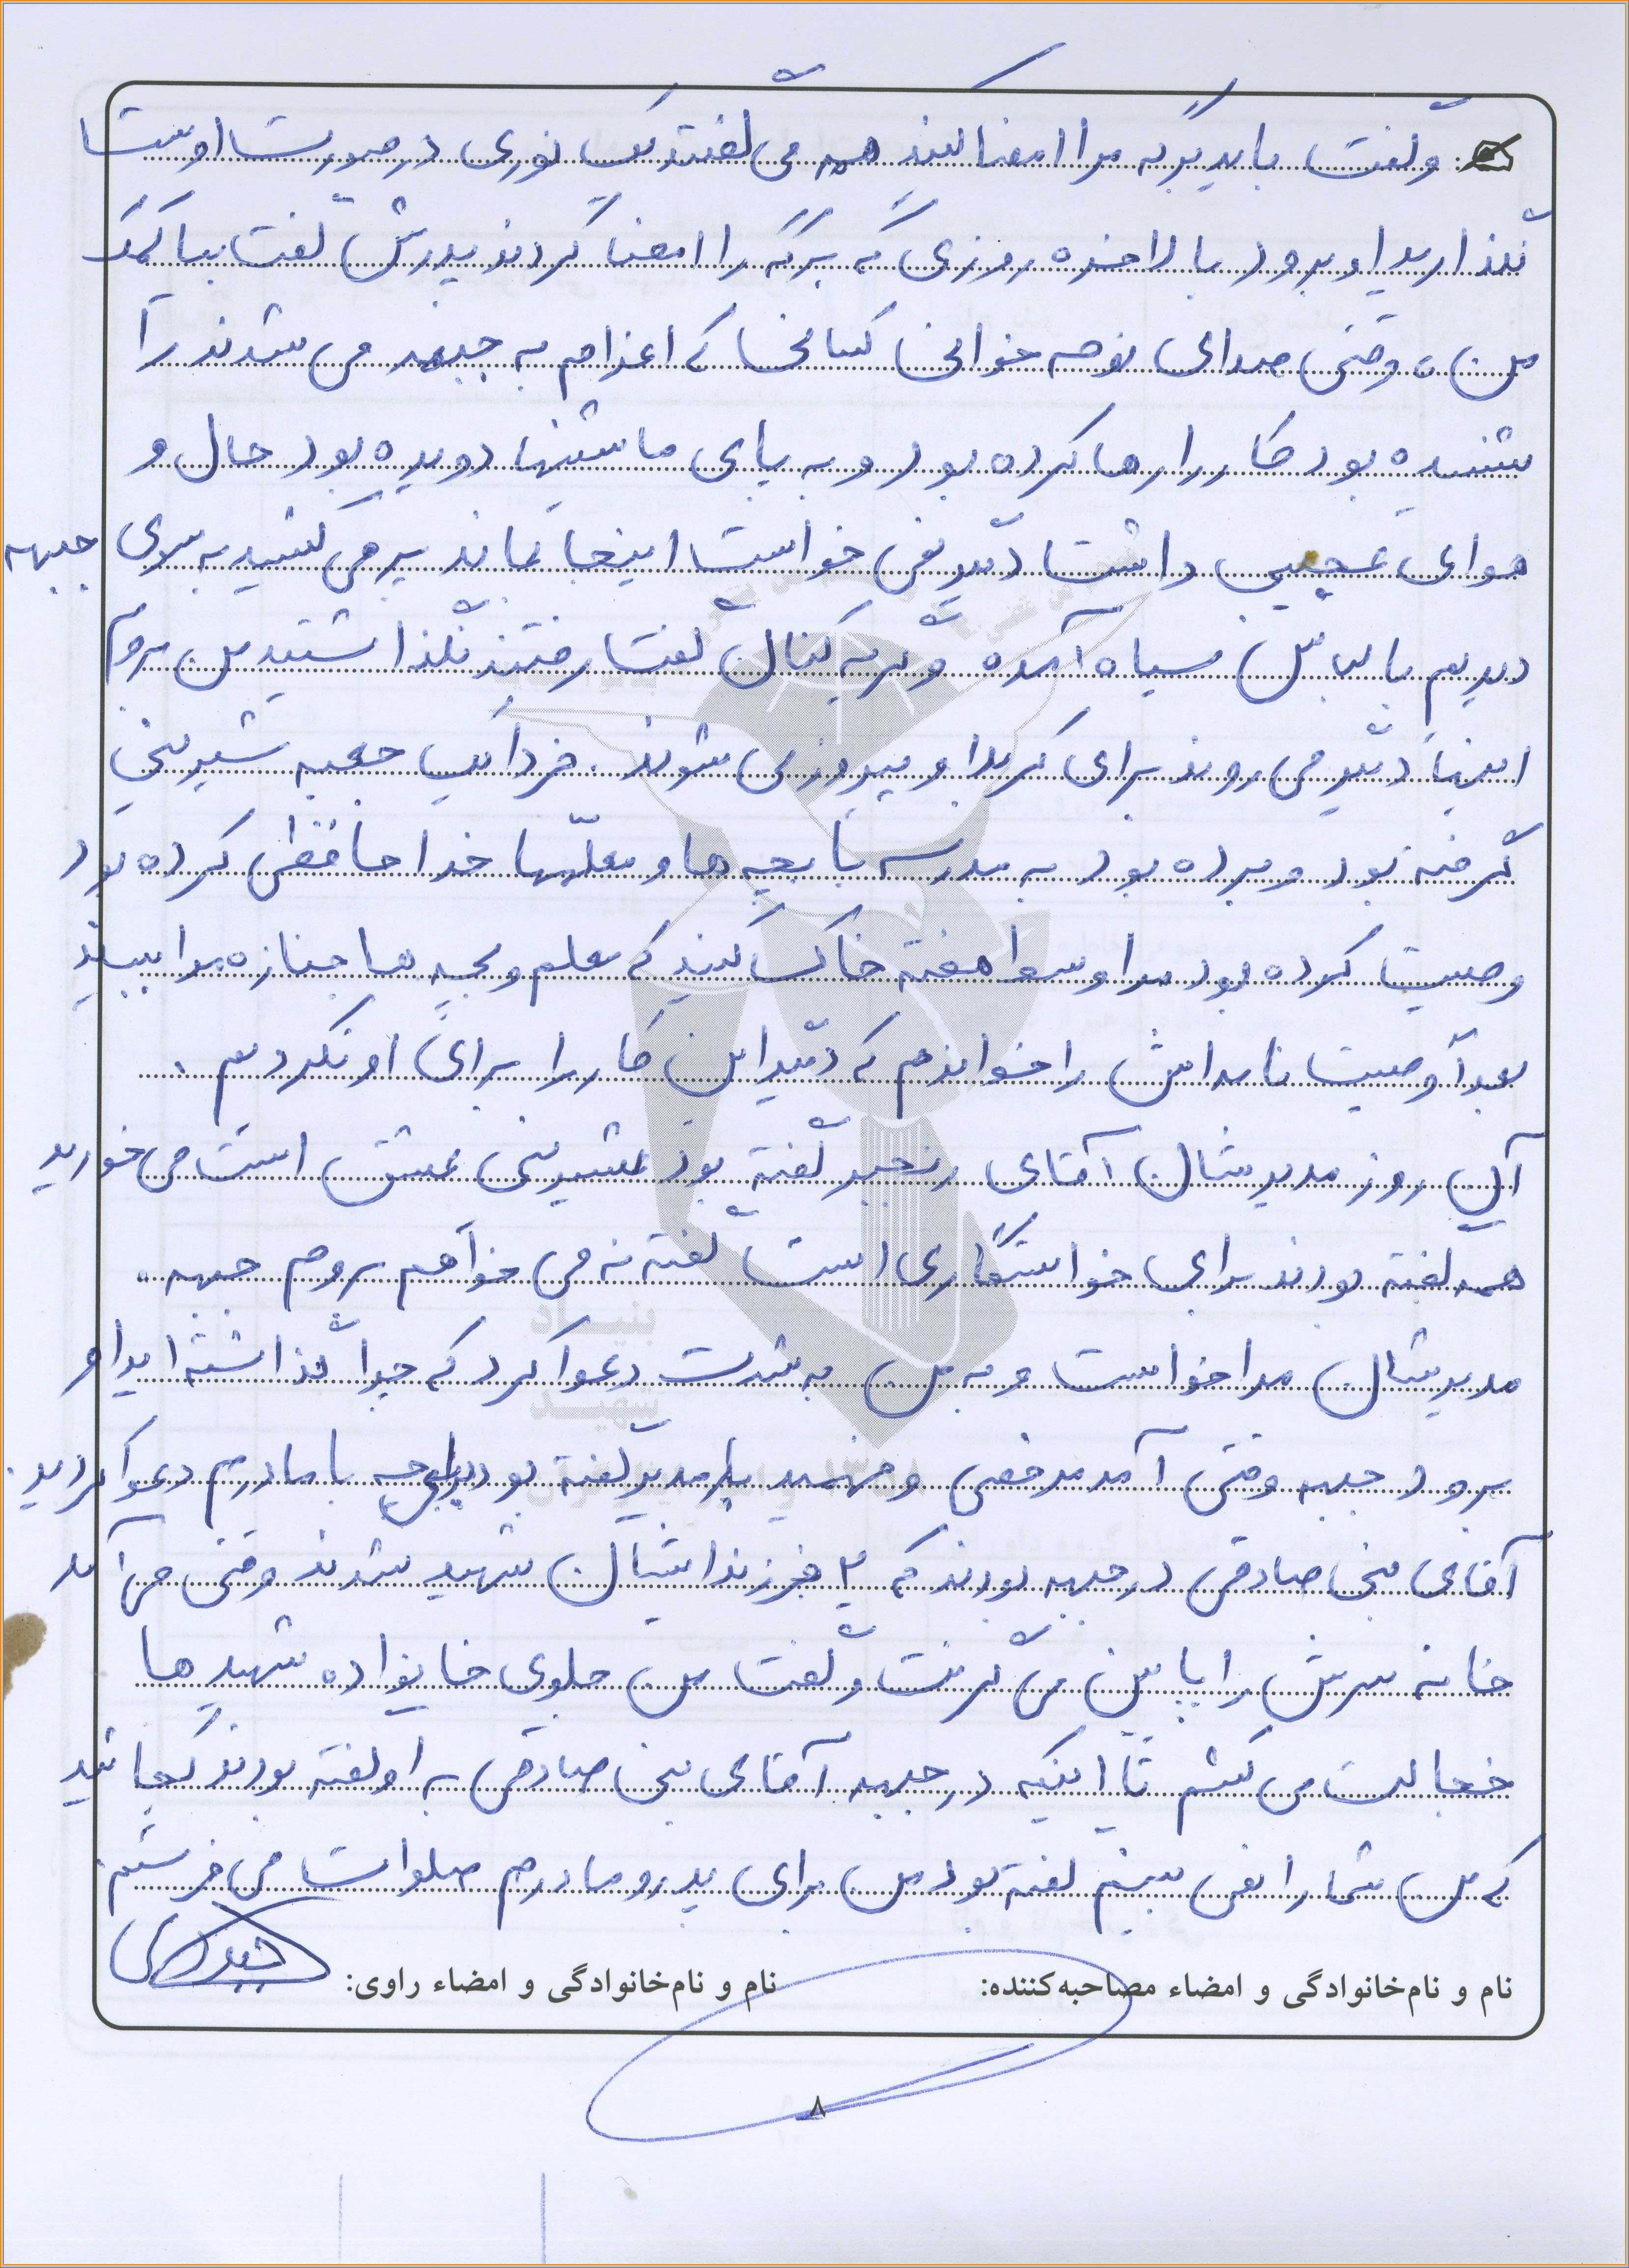 و گفت باید برگه مرا امضا کنید همه می گفتند یک نوری در صورت اوست
نگذارید او برود بالاخره روزی که برگه را امضا کردند پدرش گفت بیا کمک
من، وقتی صدای نوحه خوانی کسانی که اعزام به جبهه می شدند را
شنیده بود کار را رها کرده بود و به پای ماشینها دویده بود حال و
هوای عجیبی داشت دیگر نمی خواست اینجا بماند پر می کشید به سوی جبهه
دیدیم با لباس سیاه آمده و گریه کنان گفت رفتند نگذاشتید من بروم
اینها دیگر می روند برای کربلا و پیروز می شوند. فردا یک جعبه شیرینی
گرفته بود و برده بود به مدرسه با بچه ها و معلمها خدا حافظی کرده بود
وصیت کرده بود مرا وسط هفته خاک کنید که معلم و بچه ها جنازه مرا ببینند
بعداً وصیت نامه اش را خواندم که دیگر این کار را برای او نکردیم.
آن روز مدیرشان آقای رنجبر گفته بود شیرینی عشق است می خورید
همه گفته بودند برای خواستگاری است گفته نه می خواهم بروم جبهه..
مدیرشان مرا خواست و به من به شدت دعوا کرد که چرا گذاشته اید او
برود جبهه وقتی آمد مرخصی و فهمید به مدیر گفته بود برای چه با مادرم دعوا کردید.
آقای بنی صادقی در جبهه بودند که ۲ فرزند ایشان شهید شدند وقتی می آمد
خانه سرش را پایین می گرفت و گفت من جلوی خانواده شهید ها
خجالت می کشم تا اینکه در جبهه آقای بنی صادقی به او گفته بودند کجائید
که من شما را نمی بینم گفته بود من برای پدر و مادرم صلوات می فرستم.
نام و نام‌خانوادگی و امضاء مصاحبه‌کننده: نام و نام‌خانوادگی و امضاء راوی:
۸
بنیاد
شهید